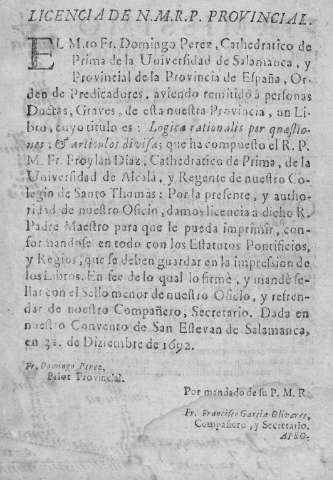 LICENCIA DE N.M.R.P. PROVINCIAL.
EL M.ro Fr. Domingo Perez, Cathedratico de
Prima de la Universidad de Salamanca, y
Provincial de la Provincia de España, Or-
den de Predicadores, aviendo remitido à personas
Doctas, Graves, de esta nuestra Provincia, un Li-
bro, cuyo titulo es: Logica rationalis per quæstio-
nes, & articulos divisa; que ha compuesto el R.P.
M. Fr. Froylan Diaz, Cathedratico de Prima, de la
Universidad de Alcalà, y Regente de nuestro Co-
legio de Santo Thomàs: Por la presente, y autho-
ridad de nuestro Oficio, damos licencia à dicho R.
Padre Maestro para que le pueda imprimir, con-
formandose en todo con los Estatutos Pontificios,
y Regios, que se deben guardar en la impression de
los Libros. En fee de lo qual lo firmè, y mandè se-
llar con el Sello menor de nuestro Oficio, y refren-
dar de nuestro Compañero, Secretario. Dada en
nuestro Convento de San Estevan de Salamanca,
en de Diziembre de 1692.
Fr. Domingo Perez,
Prior Provincial.
Por mandado de su P. M. R.
Fr. Francisco Garcia Olivares,
Compañero, y Secretario.